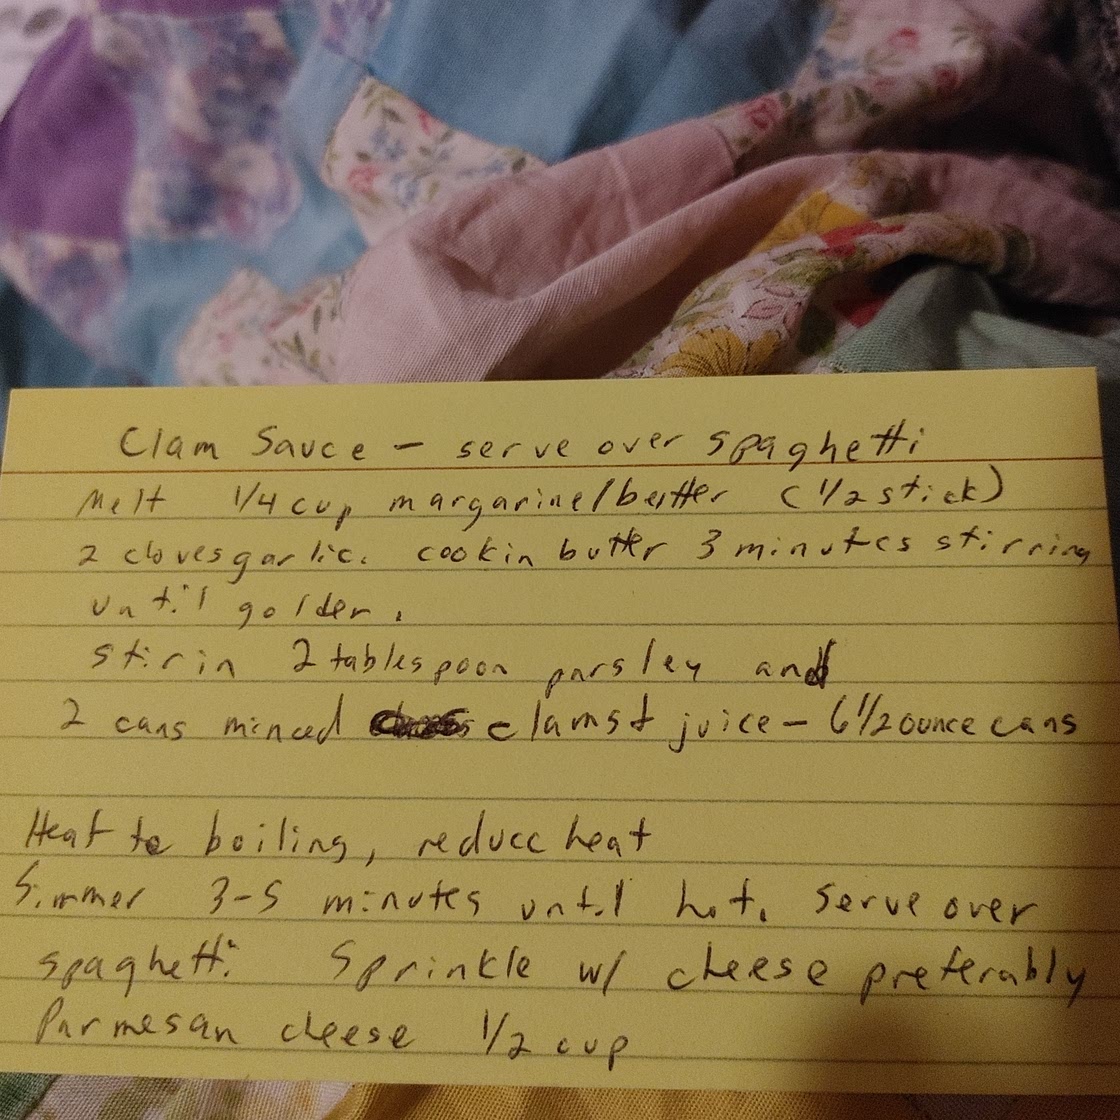 Clam Sauce - serve over spaghetti
Melt 1/4 cup margarine/butter (1/2 stick)
2 cloves garlic. cook in butter 3 minutes stirring
until golden.
stir in 2 tablespoon parsley and
2 cans minced clams + juice - 6 1/2 ounce cans
Heat to boiling, reduce heat
Simmer 3-5 minutes until hot. Serve over
spaghetti Sprinkle w/ cheese preferably
Parmesan cheese 1/2 cup